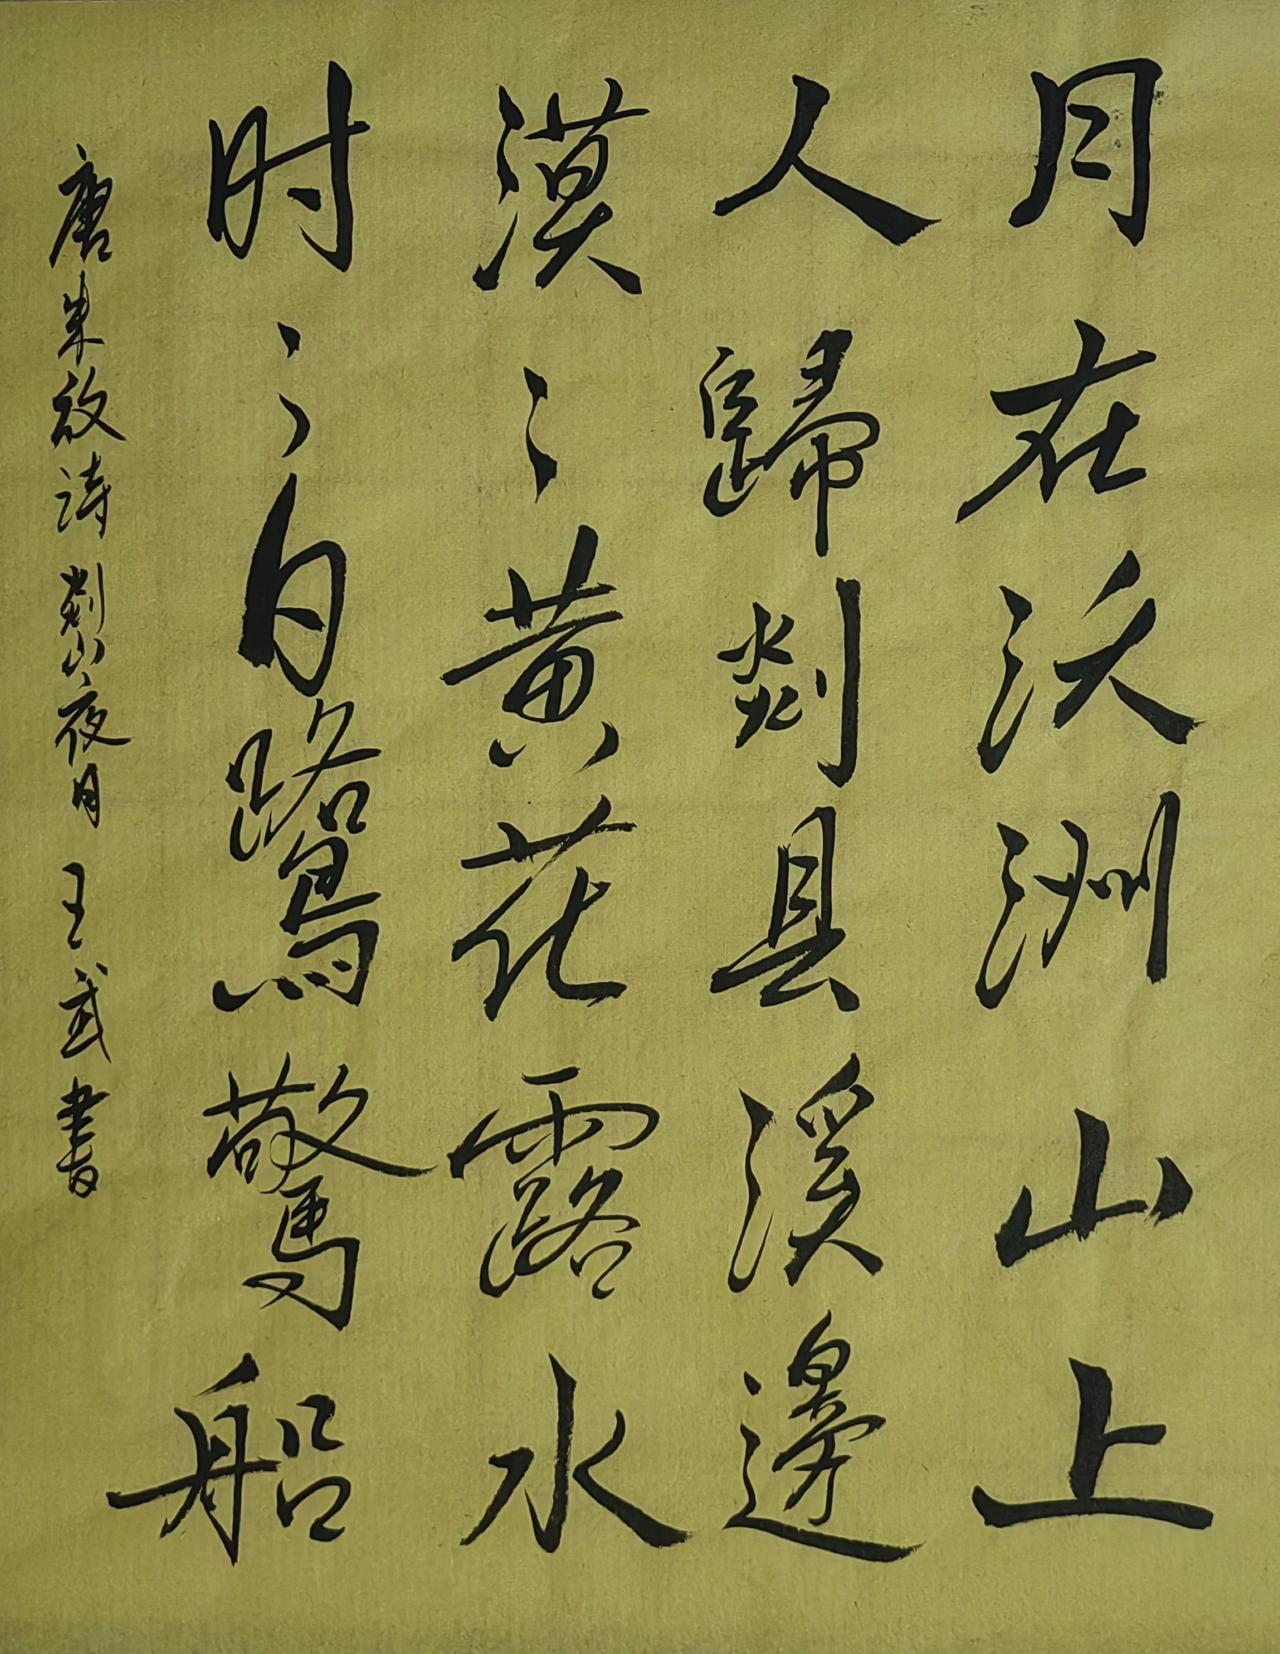 月在沃洲山上
人歸剡县溪邊
漠〻黄花露水
时〻白鷺驚船
唐朱放诗剡山夜月 王武書